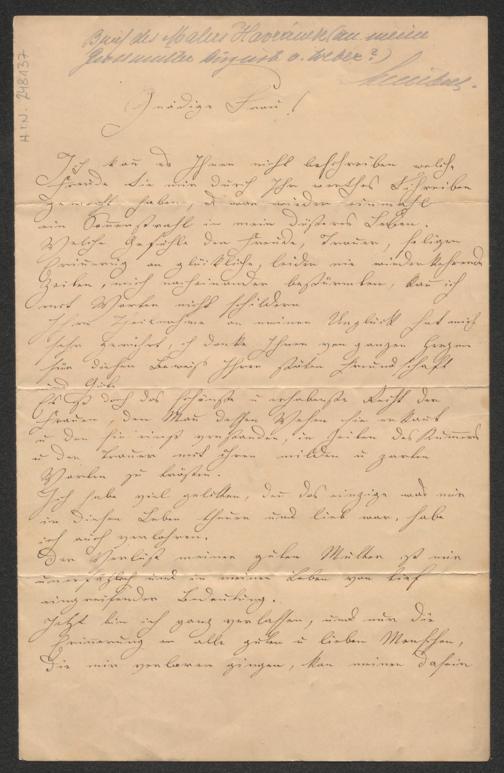 Brief des Malers Havránek (an meine
Grossmutter August. v. Weber?)
H.I.N. 248137
Gnädige Frau!
Ich kan es Ihnen nicht beschreiben welche
Freude Sie mir durch Ihr werthes Schreiben
gemacht haben, es war wieder einmahl
ein Sonenstrahl in mein düsteres Leben.
Welche Gefühle der Freude, Trauer, seligen
Erinerung an glückliche, leider nie wiederkehrende
Zeiten, mich nacheinander bestürmten, kan ich
mit Worten nicht schildern
Ihre Theilnahme an meinen Unglück hat mich
sehr gerührt, ich danke Ihnen von ganzen Herzen
für diesen Beweis Ihrer Freundschaft
und Güte
Es ist doch das schönste u erhabenste Recht der
Frauen, den Man dessen Wesen sie erkant
u den sie einst verstanden, in Zeiten des Kummers
u der Trauer mit ihren milden u zarten
Worten zu trösten.
Ich habe viel gelitten, den das einzige was mir
in diesen Leben theuer und lieb war, habe
ich auch verlohren.
Der Verlust meiner guten Mutter ist mir
unersetzlich und in meinen Leben von tief
eingreifender Bedeutung.
Jetzt bin ich ganz verlassen, und nur die
Erinnerung an alle guten u lieben Menschen,
die mir verloren gingen, kan meinen Dasein